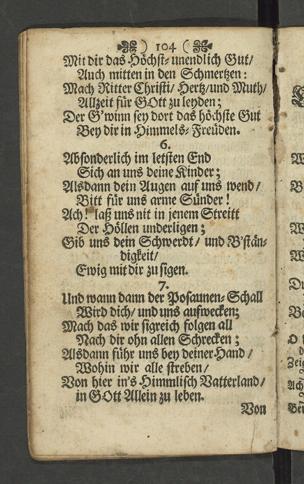 ) 104 (
Mit dir das Höchst-unendlich Gut/
Auch mitten in den Schmertzen:
Mach Ritter Christi/ Hertz/und Muth/
Allzeit für GOtt zu leyden;
Der G'winn sey dort das höchste Gut
Bey dir in Himmels-Freuden.
6.
Absonderlich im letsten End
Sich an uns deine Kinder;
Alsdann dein Augen auf uns wend/
Bitt für uns arme Sünder!
Ach! laß uns nit in jenem Streitt
Der Höllen underligen;
Gib uns dein Schwerdt/ und B'stän-
digkeit/
Ewig mit dir zu sigen.
7.
Und wann dann der Posaunen-Schall
Wird dich/ und uns aufwecken;
Mach das wir sigreich folgen all
Nach dir ohn allen Schrecken;
Alsdann führ uns bey deiner Hand/
Wohin wir alle streben/
Von hier in's Himmlisch Vatterland/
in GOtt Allein zu leben.
Von